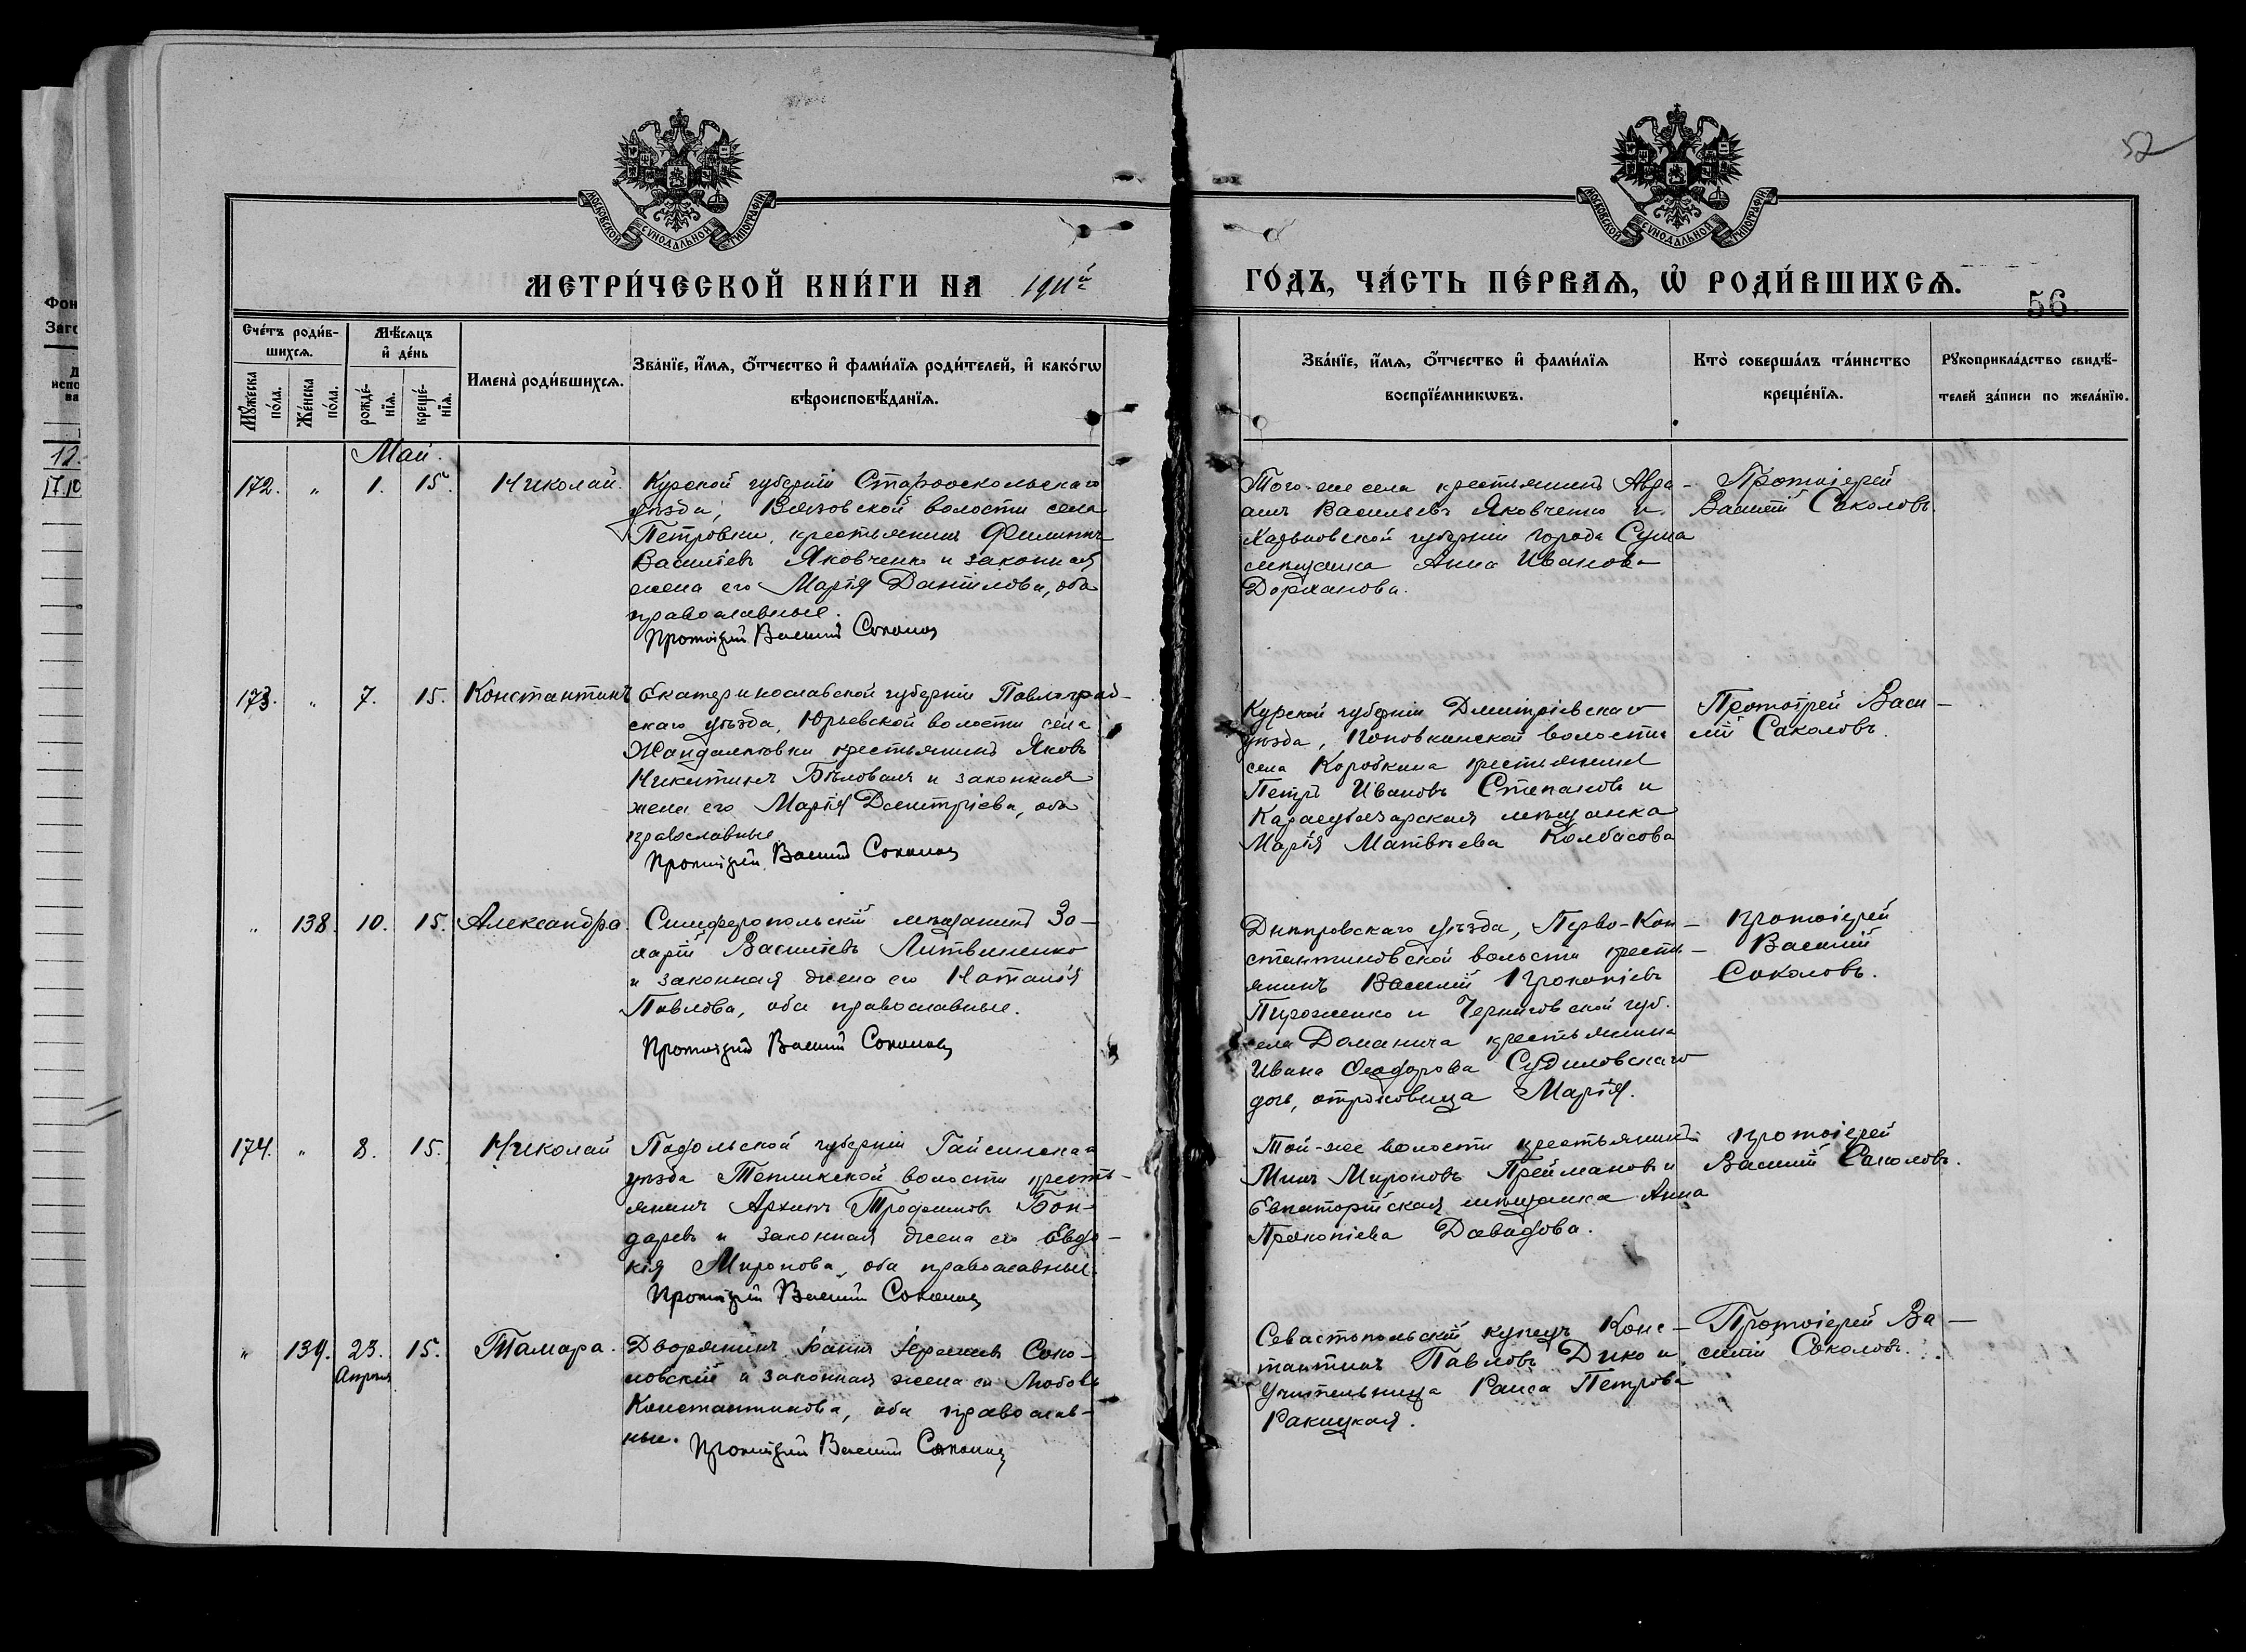 52
МОСКОВСКОЙ СѴНОДАЛЬНОЙ ТИПОГРАФІИ.
МОСКОВСКОЙ СѴНОДАЛЬНОЙ ТИПОГРАФІИ.
МЕТРИ́ЧЕСКОЙ КНИ́ГИ НА 1911й
ГО́ДЪ, ЧА́СТЬ ПЕ́РВАѦ, Ѡ҆ РОДИ́ВШИХСѦ.
56.
Сче́тъ роди́в-
шихсѧ.
Мꙋ́жеска по́ла.
Же́нска по́ла.
Мѣ́сѧцъ
и҆ де́нь
рожде́-
нїѧ.
креще́-
нїѧ.
Имена̀ роди́вшихсѧ.
Зва́нїе, и҆́мѧ, ѻ҆́тчество и҆ фами́лїѧ роди́телей, и҆ како́гѡ
вѣроисповѣ́данїѧ.
Зва́нїе, и҆́мѧ, ѻ҆́тчество и҆ фами́лїѧ
воспрїе́мникѡвъ.
Кто̀ соверша́лъ та́инство
креще́нїѧ.
Рꙋкоприкла́дство свидѣ́-
телей за́писи по жела́нїю.
Май.
172. " 1. 15. Николай.
Курской губерніи Старооскольскаго
уѣзда, Вязовской волости села
Петровки, крестьянинъ Филиппъ
Василіевъ Яковченко и законная
жена его Марія Даніилова, оба
православные.
Протоіерей Василій Соколовъ
Того-же села крестьянинъ Авра-
амъ Васильевъ Яковченко и
Харьковской губерніи города Сумы
мѣщанка Анна Иванова
Протоіерей
Василій Соколовъ.
173. " 7. 15. Константинъ
Екатеринославской губерніи Павлоград-
скаго уѣзда, Юрьевской волости села
крестьянинъ Яковъ
Никитинъ и законная
жена его Марія Димитріева, оба
православные
Протоіерей Василій Соколовъ
Курской губерніи Дмитріевскаго
уѣзда, волости
села Коробкина крестьянинъ
Петръ Ивановъ Степановъ и
Карасубазарская мѣщанка
Марія Матвѣева Колбасова
Протоіерей Васи-
лій Соколовъ.
" 138. 10. 15. Александра.
Симферопольскій мѣщанинъ За-
харій Василіевъ Литвиненко
и законная жена его Наталія
Павлова, оба православные.
Протоіерей Василій Соколовъ
Днѣпровскаго уѣзда, Перво-Кон-
стантиновской волости кресть-
янинъ Василій Прокопіевъ
и Черниговской губ.
села Доманича крестьянина
Ивана Ѳеодорова Судиловскаго
дочь, отроковица Марія.
Протоіерей
Василій
Соколовъ.
174. " 8. 15. Николай
Подольской губерніи Гайсинскаго
уѣзда Тепликской волости кресть-
янинъ Архипъ Трофимовъ Бон-
даревъ и законная жена его Евдо-
кія Миронова, оба православные.
Протоіерей Василій Соколовъ
Той-же волости крестьянинъ
Мироновъ и
Евпаторійская мѣщанка Анна
Прокопіева Давыдова.
Протоіерей
Василій Соколовъ.
" 139. 23. 15. Тамара.
Апрѣля
Дворянинъ Іоаннъ Соко-
ловскій и законная жена его Любовь
Константинова, оба православ-
ные.
Протоіерей Василій Соколовъ
Севастопольскій купецъ Конс-
тантинъ Павловъ Дико и
учительница Раиса Петрова
Ракицкая.
Протоіерей Ва-
силій Соколовъ.